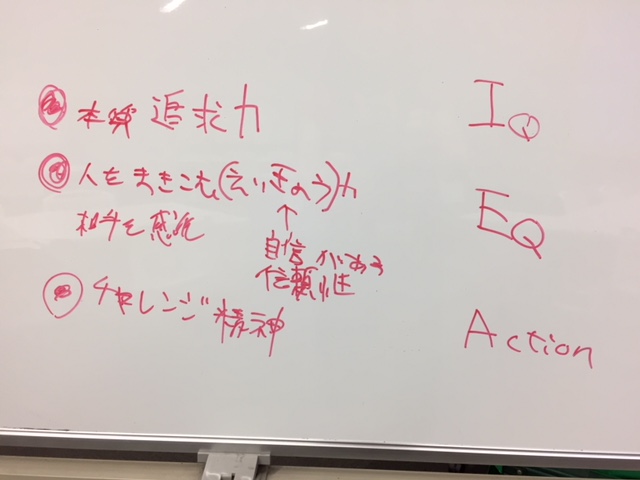 本質 追求力
IQ
人をまきこむ(えいきょう)力
EQ
相手を感化
自信がある
信頼性
チャレンジ精神
Action